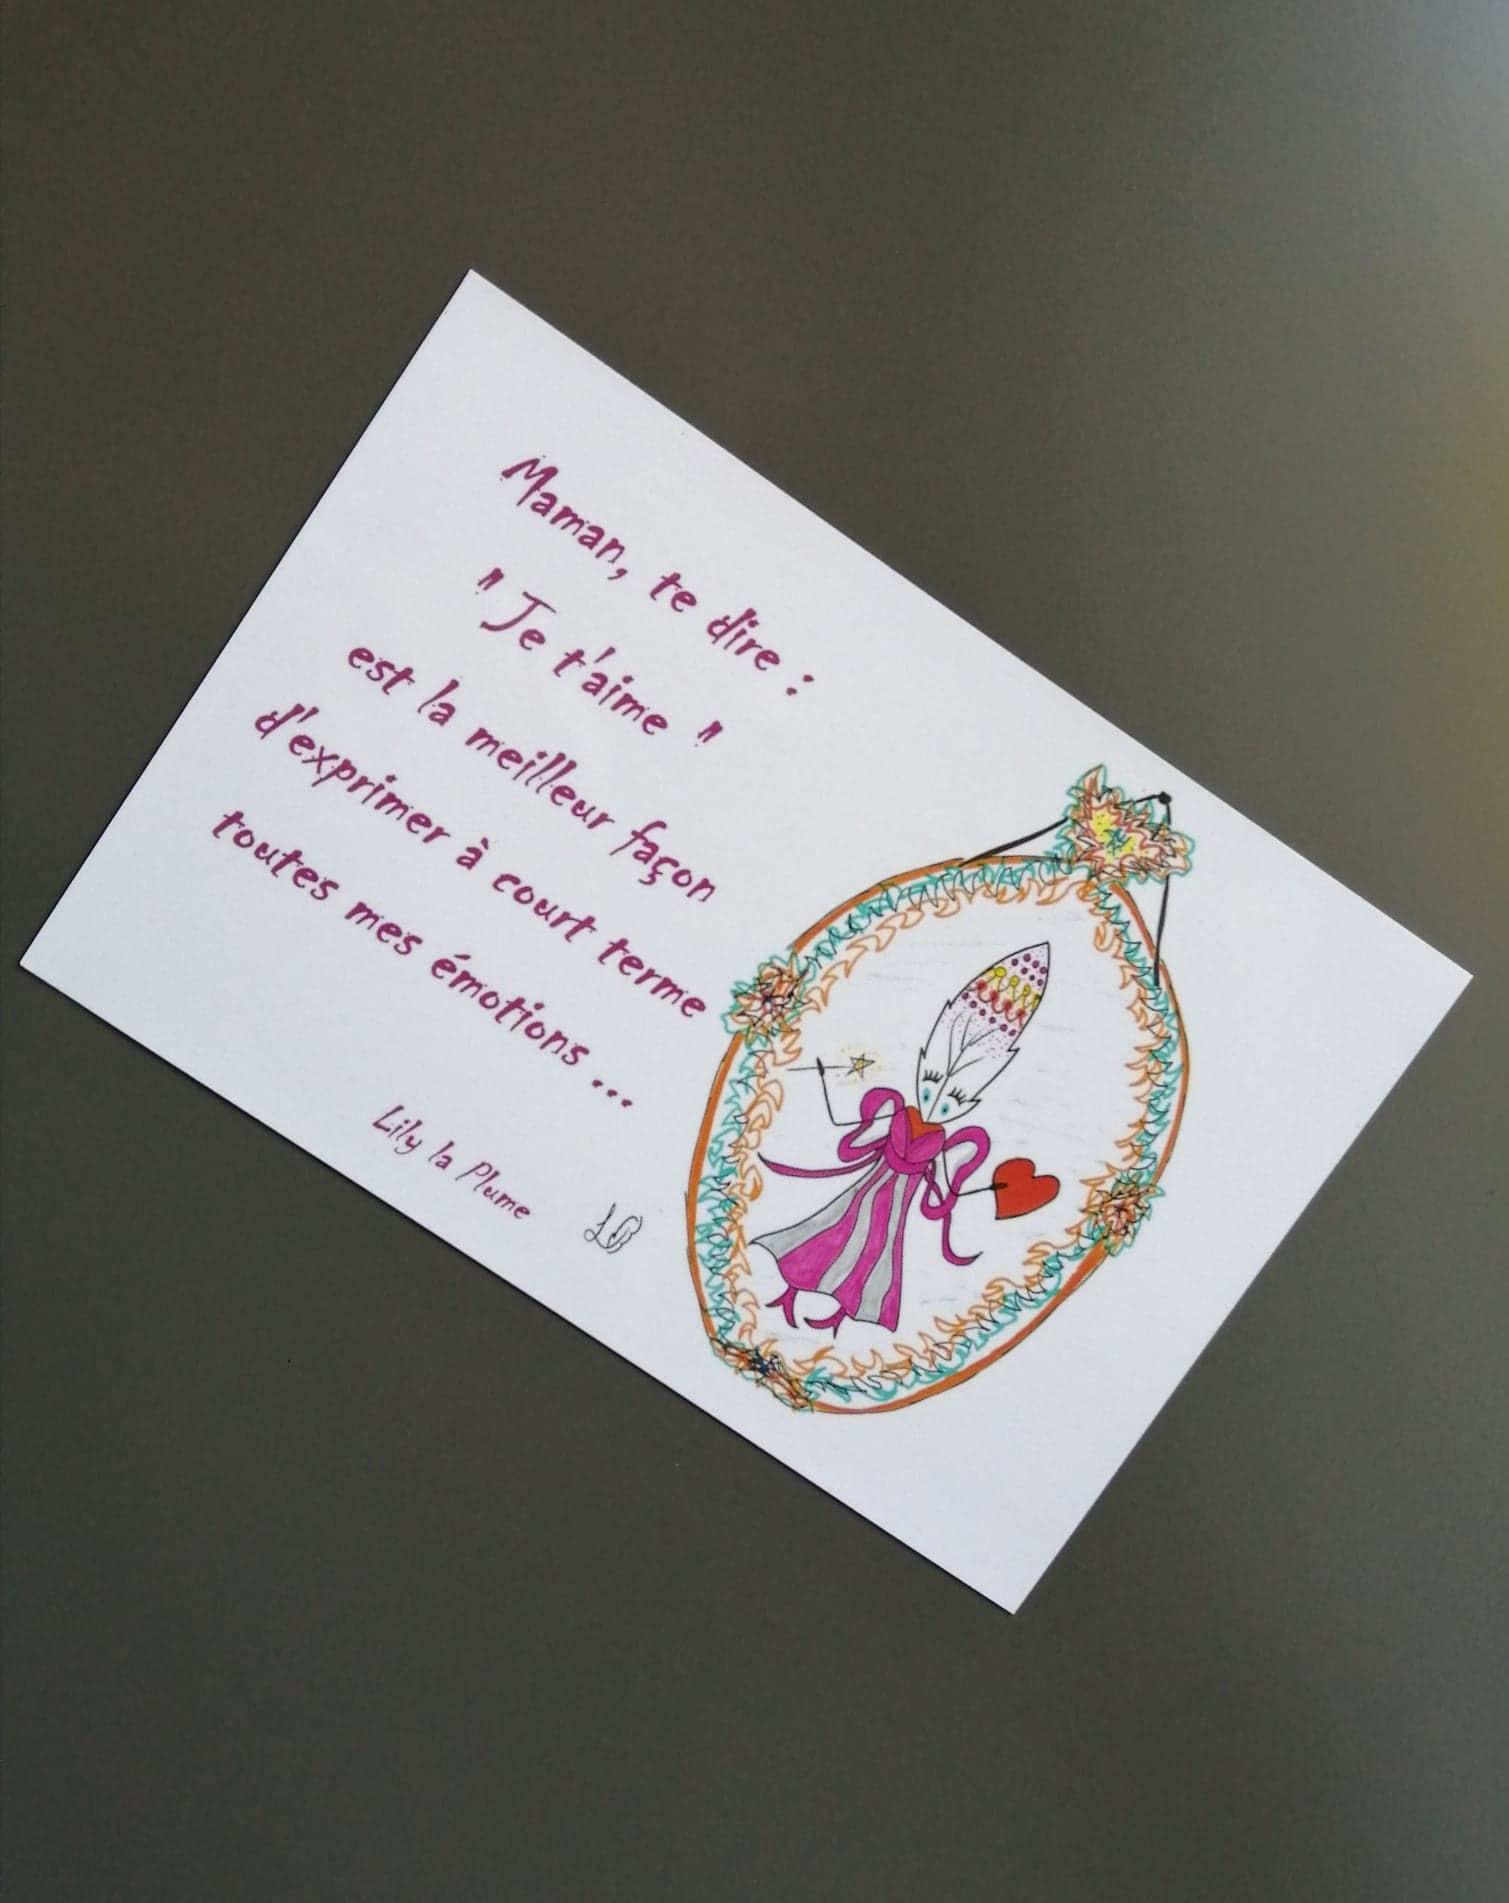 Maman, te dire :
" Je t'aime "
est la meilleur façon
d'exprimer à court terme
toutes mes émotions ...
Lily la Plume
LB